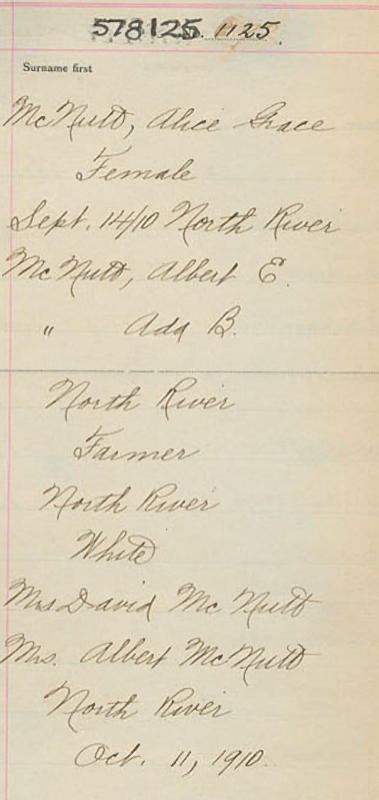 578125. 1125.
Surname first
McNutt, Alice Grace
Female
Sept. 14/10 North River
McNutt, Albert E.
" Ada B.
North River
Farmer
North River
White
Mrs David McNutt
Mrs. Albert McNutt
North River
Oct. 11, 1910.